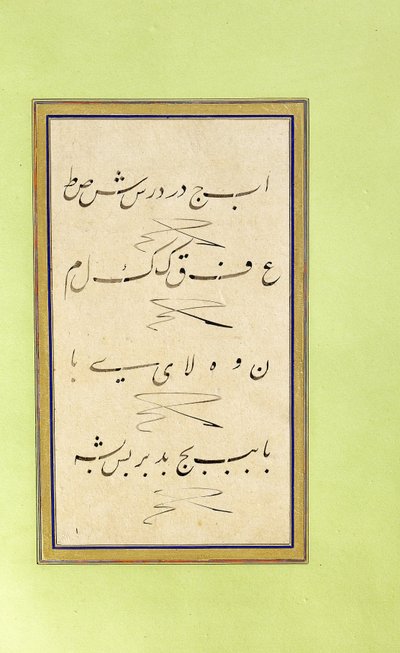 ا ب ج د ر د ر س س ش ص ط
ع ف ق ک ک ل م
ن و ه لا ی ے با
با ببب بج بد بر بس بشبه